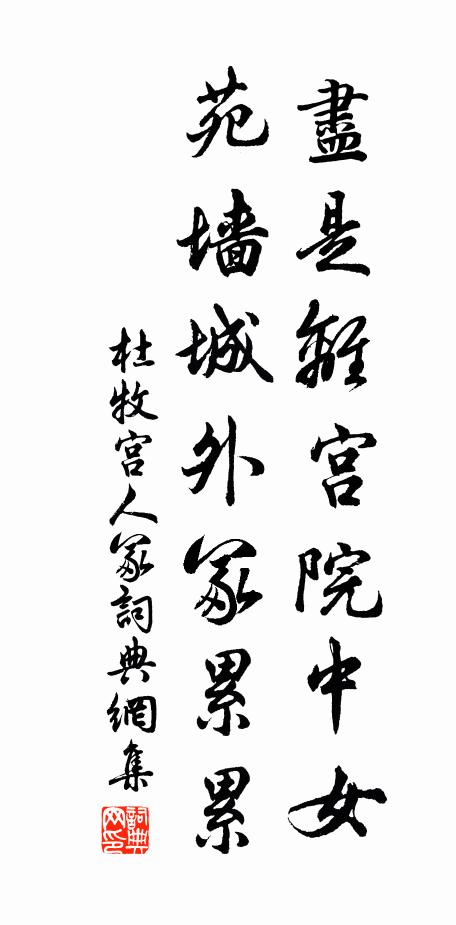 盡是離宮院中女
苑墻城外冢累累
杜牧宮人冢詞典網集
詞典網印